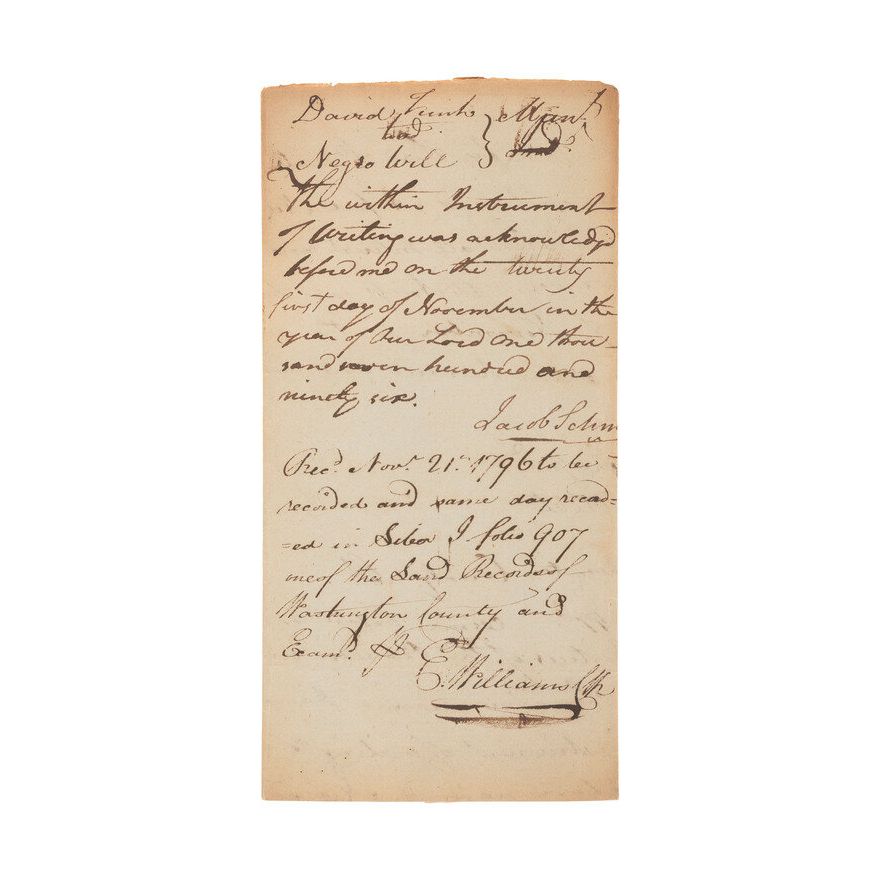 David Funk } Man.t
and
Negro Will
The within Instrument
of Writing was acknowledgd
before me on the twenty
first day of November in the
year of Our Lord One thou-
sand seven hundred and
ninety six.
Jacob Schn
Rec.d Nov.r 21.st 1796 to be
recorded and same day record=
=ed in Liber J folio 907
one of the Land Records of
Washington County and
Exam.d
E. Williams Clk